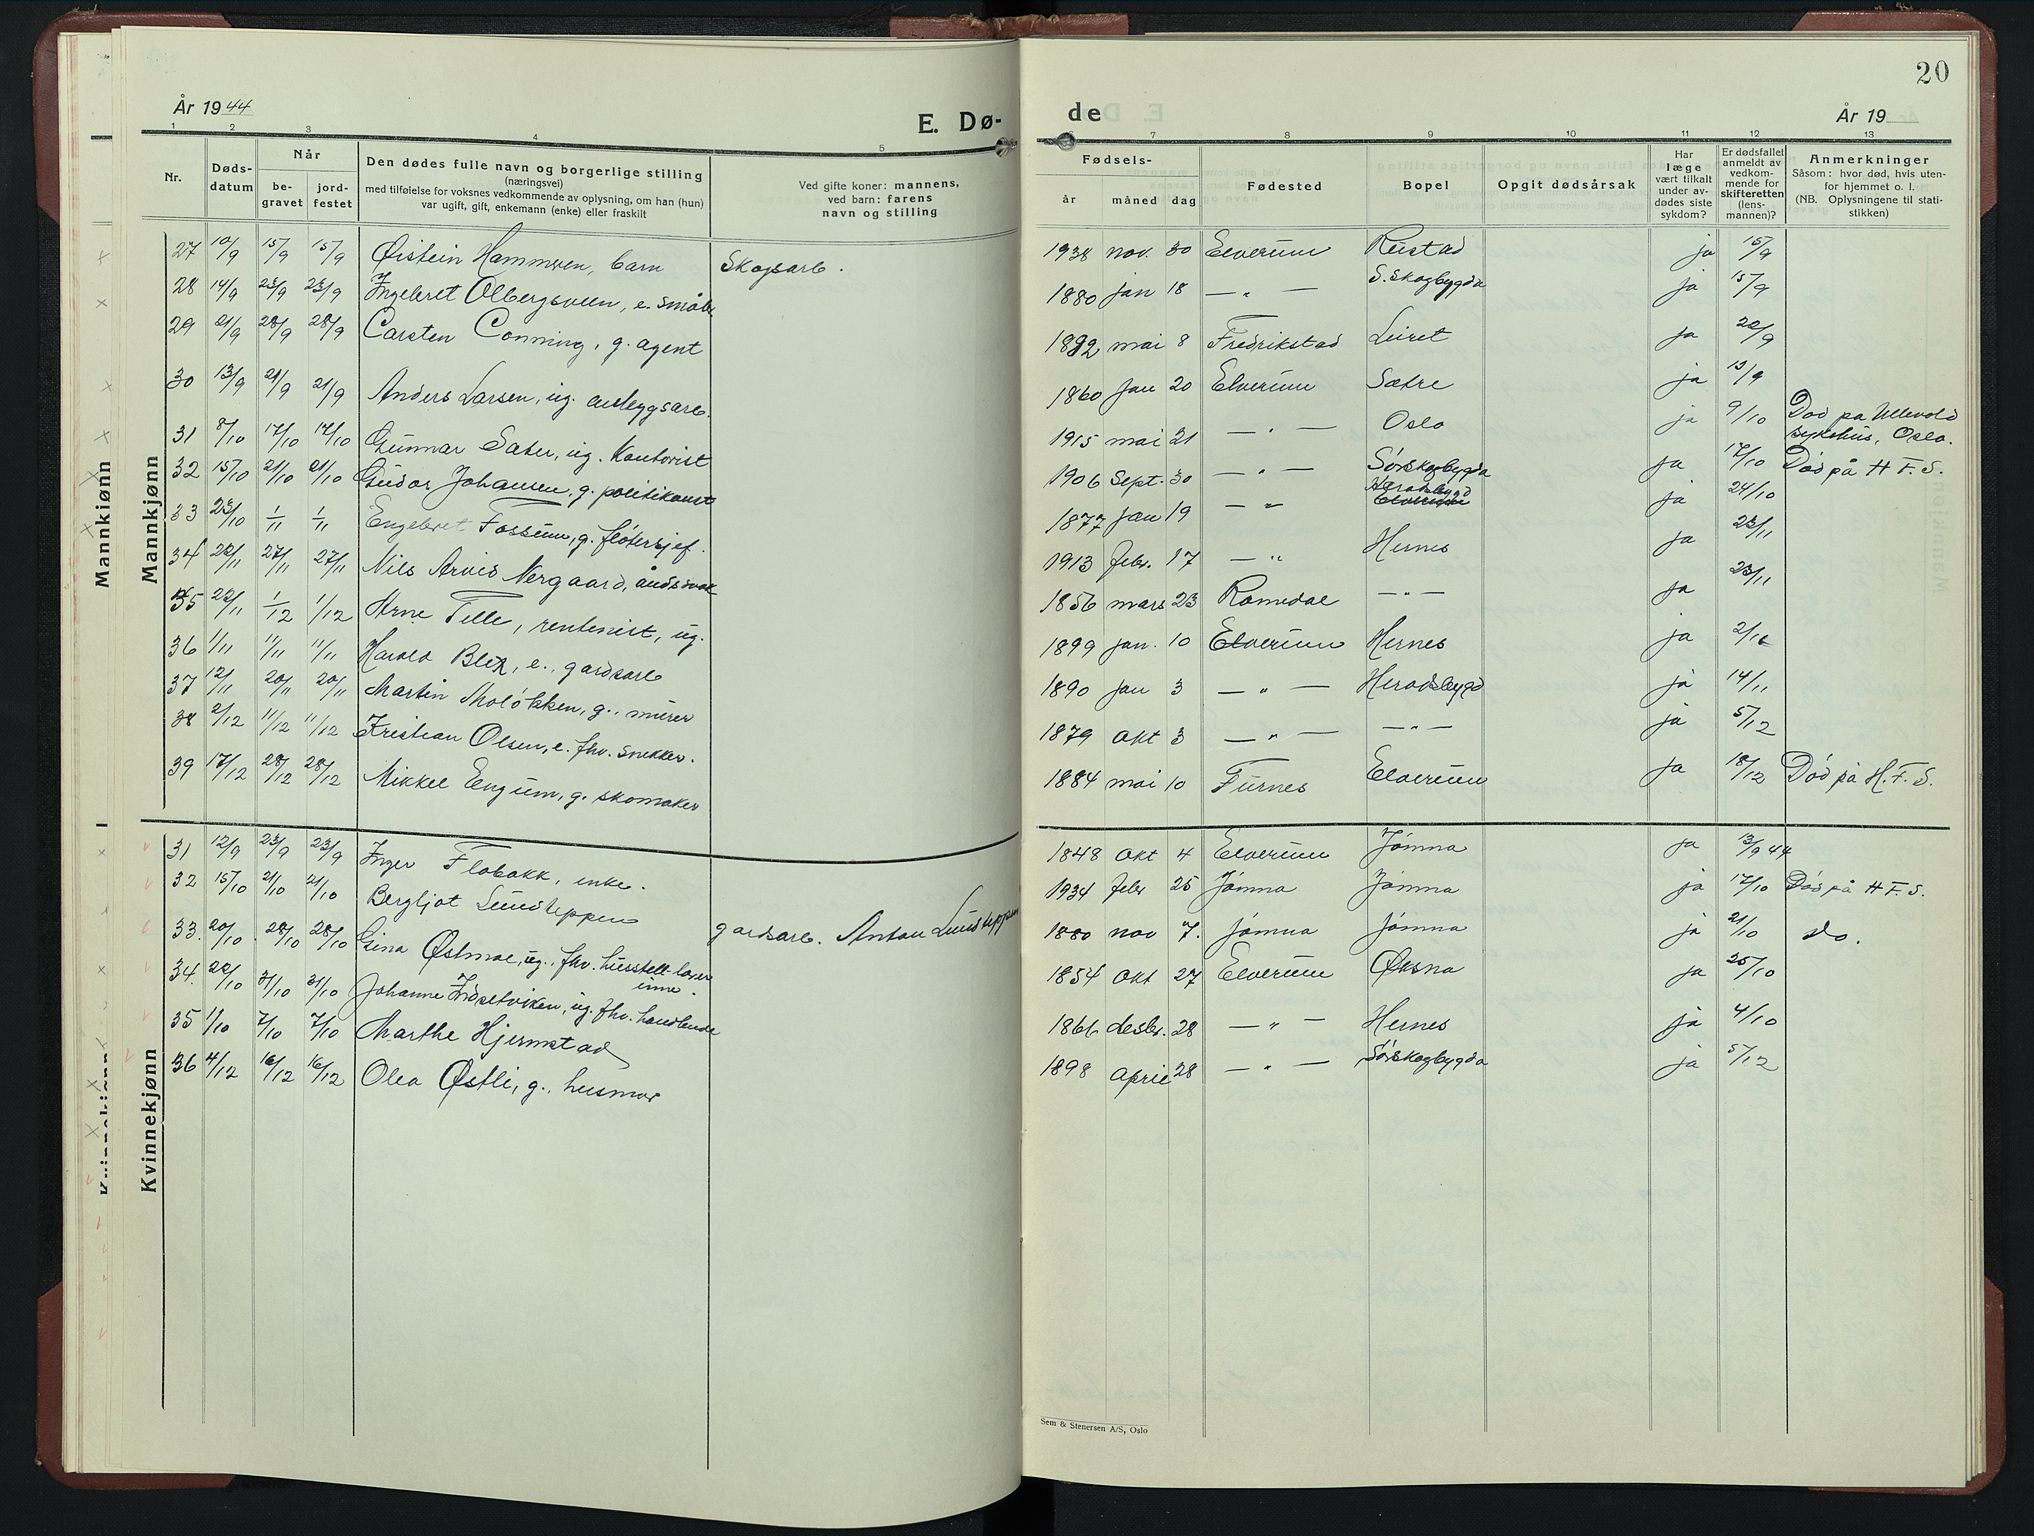 År 1944
E. Dø-
1 2 3 4 5
Nr.
Døds-
datum
Når
be-
gravet
jord-
festet
Den dødes fulle navn og borgerlige stilling
(næringsvei)
med tilføielse for voksnes vedkommende av oplysning, om han (hun)
var ugift, gift, enkemann (enke) eller fraskilt
Ved gifte koner: mannens,
ved barn: farens
navn og stilling
Mannkjønn
27 10/9 15/9 15/9 Øistein Hammeren, barn Skogsarb.
28 14/9 23/9 23/9 Ingebret Olbergsveen, e. småbr
29 21/9 28/9 28/9 Carsten Conning, g. agent
30 13/9 21/9 21/9 Anders Larsen, ug. anleggsarb.
31 8/10 17/10 17/10 Gunnar Sater, ug. Kontorist
32 15/10 21/10 21/10 Gudor Johansen, g. politikonst
33 23/10 1/11 1/11 Engebret Fossum, g. fløtersjef.
34 22/11 27/11 27/11 Nils Arvid Nergaard, åndssvak
35 22/11 1/12 1/12 Arne Telle, rentenist, ug.
36 1/11 11/11 11/11 Harold , e., gardsarb
37 12/11 20/11 20/11 Martin Moløkken, g., murer
38 2/12 11/12 11/12 Kristian Olsen, e. fhv. snekker.
39 17/12 28/12 28/12 Mikkel Engum, g. skomaker
Kvinnekjønn
31 12/9 23/9 23/9 Inger Flobakk, enke.
32 15/10 21/10 21/10 Bergljot Lundteppen gardsarb. Anton Lundteppen
33. 20/10. 28/10 28/10 Gina Østmoe, ug., fhv. husstell-lærer
inne.
34. 22/10 31/10 31/10 Johanne Idsetviken, ug. fhv. handlende
35 1/10 7/10 7/10 Marthe Hjermstad
36 4/12 16/12 16/12 Olea Østli, g., husmor
Mannkjønn
Kvinnekjønn
20
de
År 19
6 7 8 9 10 11 12 13
Fødsels-
år måned dag
Fødested
Bopel
Opgit dødsårsak
Har
læge
vært tilkalt
under av-
dødes siste
sykdom?
Er dødsfallet
anmeldt av
vedkom-
mende for
skifteretten
(lens-
mannen)?
Anmerkninger
Såsom: hvor død, hvis uten-
for hjemmet o. l.
(NB. Oplysningene til stati-
stikken)
1938 nov. 30 Elverum Rustad ja 15/9
1880 jan 18 — „ — S. Skogbygda ja 15/9
1892 mai 8 Fredrikstad Leiret ja 22/9
1860 Jan 20 Elverum Sætre ja 13/9
1915 mai 21 — „ — Oslo ja 9/10 Død på Ullevold
sykehus, Oslo.
1906 Sept. 30 — „ — Sørskogbygda ja 17/10 Død på H F. S.
1877 jan 19 — „ Heradsbygd
Elverum ja 24/10
1913 febr. 17 — „ Hernes ja 23/11
1856 mars 23 Romedal — „ — ja 23/11
1899 jan. 10 Elverum Hernes ja 2/11
1890 jan 3 — „ — Heradsbygd ja 14/11
1879 okt 3 — „ — — „ — ja 5/12
1884 mai 10 Furnes Elverum ja 18/12 Død på H. F. S.
1848 okt 4 Elverum Jømna ja 13/9 44
1934 febr 25 Jømna Jømna ja 17/10 Død på H F. S.
1880 nov 7. Jømna Jømna ja 21/10 do.
1854 okt 27 Elverum Øksna ja 25/10
1866 desbr. 28 — „ — Hernes ja 4/10
1898 april 28 — „ — Sørskogbygda ja 5/12
Sem & Stenersen A/S, Oslo